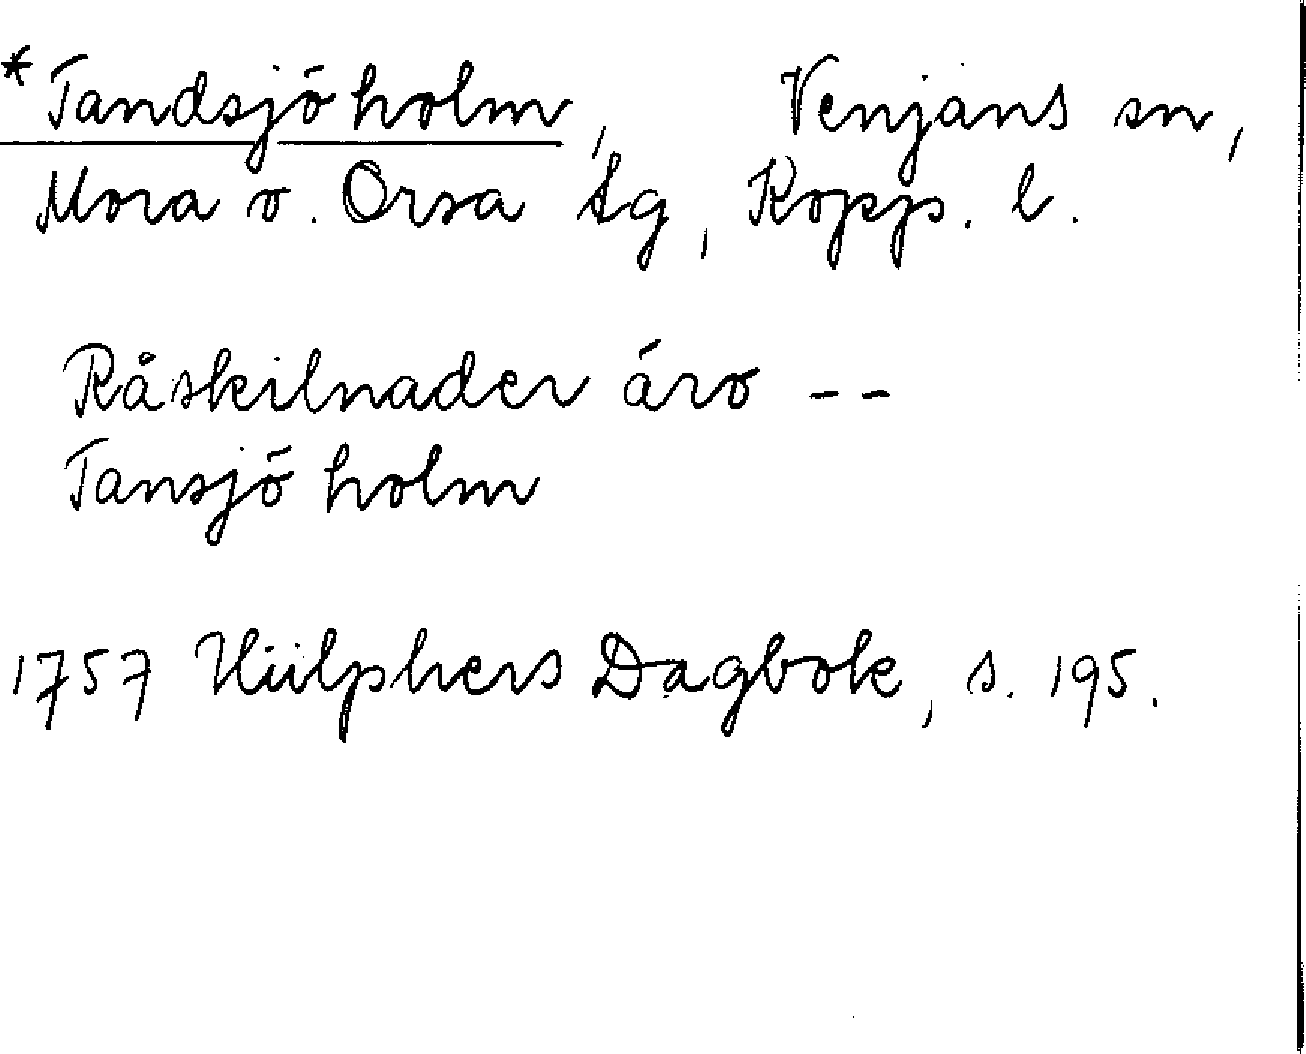 *Tandsjöholm, Venjans sn,
Mora o. Orsa tg, Kopp. l.
Råskilnader äro --
Tansjö holm
1757 Hülphers Dagbok, s. 195.